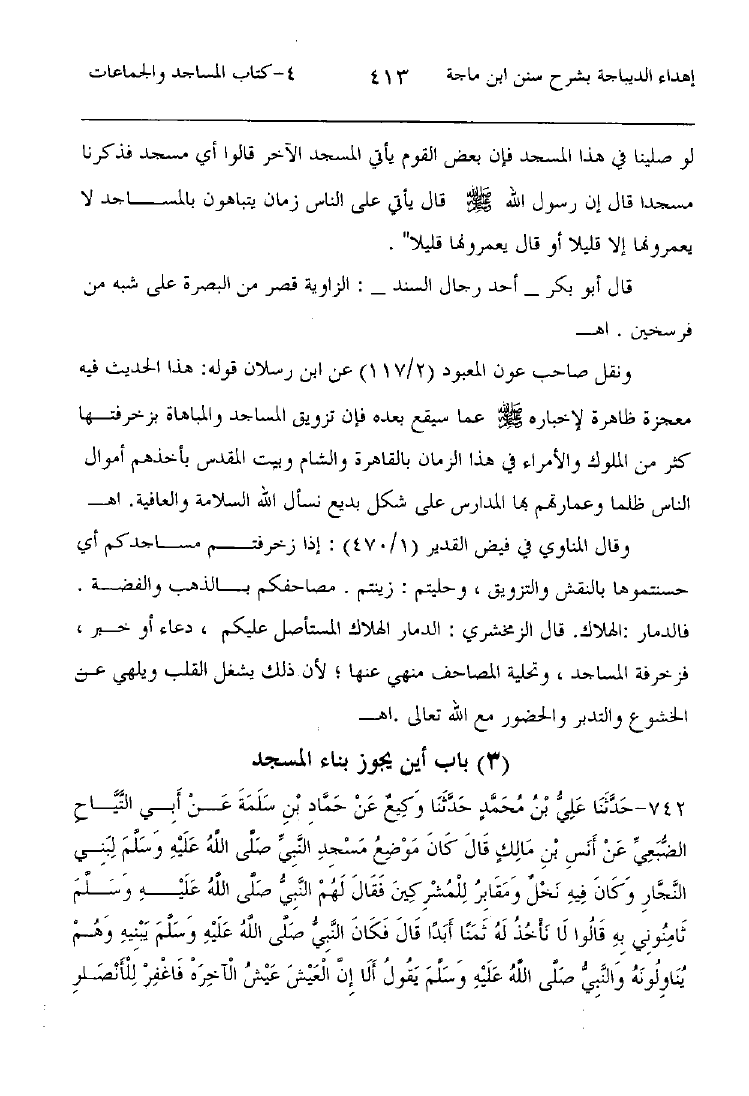 إهداء الديباجة بشرح سنن ابن ماجة ٤١٣ ٤-كتاب المساجد والجماعات
لو صلينا في هذا المسجد فإن بعض القوم يأتي المسجد الآخر قالوا أي مسجد فذكرنا
مسجدا قال إن رسول الله ﷺ قال يأتي على الناس زمان يتباهون بالمساجد لا
يعمرونها إلا قليلا أو قال يعمرونها قليلا" .
قال أبو بكر _ أحد رجال السند _ : الزاوية قصر من البصرة على شبه من
فرسخين . اهـ
ونقل صاحب عون المعبود (١١٧/٢) عن ابن رسلان قوله: هذا الحديث فيه
معجزة ظاهرة لإخباره ﷺ عما سيقع بعده فإن تزويق المساجد والمباهاة بزخرفتها
كثر من الملوك والأمراء في هذا الزمان بالقاهرة والشام وبيت المقدس بأخذهم أموال
الناس ظلما وعمارتهم بها المدارس على شكل بديع نسأل الله السلامة والعافية. اهـ
وقال المناوي في فيض القدير (٤٧٠/١) : إذا زخرفتم مساجدكم أي
حسنتموها بالنقش والتزويق ، وحليتم : زينتم . مصاحفكم بالذهب والفضة .
فالدمار :الهلاك. قال الزمخشري : الدمار الهلاك المستأصل عليكم ، دعاء أو خبر ،
فزخرفة المساجد ، وتحلية المصاحف منهي عنها ؛ لأن ذلك يشغل القلب ويلهي عن
الخشوع والتدبر والحضور مع الله تعالى .اهـ
(٣) باب أين يجوز بناء المسجد
٧٤٢-حَدَّثَنَا عَلِيُّ بْنُ مُحَمَّدٍ حَدَّثَنَا وَكِيعٌ عَنْ حَمَّادِ بْنِ سَلَمَةَ عَنْ أَبِي التَّيَّاحِ
الضُّبَعِيِّ عَنْ أَنَسِ بْنِ مَالِكٍ قَالَ كَانَ مَوْضِعُ مَسْجِدِ النَّبِيِّ صَلَّى اللَّهُ عَلَيْهِ وَسَلَّمَ لِبَنِي
النَّجَّارِ وَكَانَ فِيهِ نَخْلٌ وَمَقَابِرُ لِلْمُشْرِكِينَ فَقَالَ لَهُمْ النَّبِيُّ صَلَّى اللَّهُ عَلَيْهِ وَسَلَّمَ
ثَامِنُونِي بِهِ قَالُوا لَا نَأْخُذُ لَهُ ثَمَنًا أَبَدًا قَالَ فَكَانَ النَّبِيُّ صَلَّى اللَّهُ عَلَيْهِ وَسَلَّمَ يَبْنِيهِ وَهُمْ
يُنَاوِلُونَهُ وَالنَّبِيُّ صَلَّى اللَّهُ عَلَيْهِ وَسَلَّمَ يَقُولُ أَلَا إِنَّ الْعَيْشَ عَيْشُ الْآخِرَهْ فَاغْفِرْ لِلْأَنْصَارِ